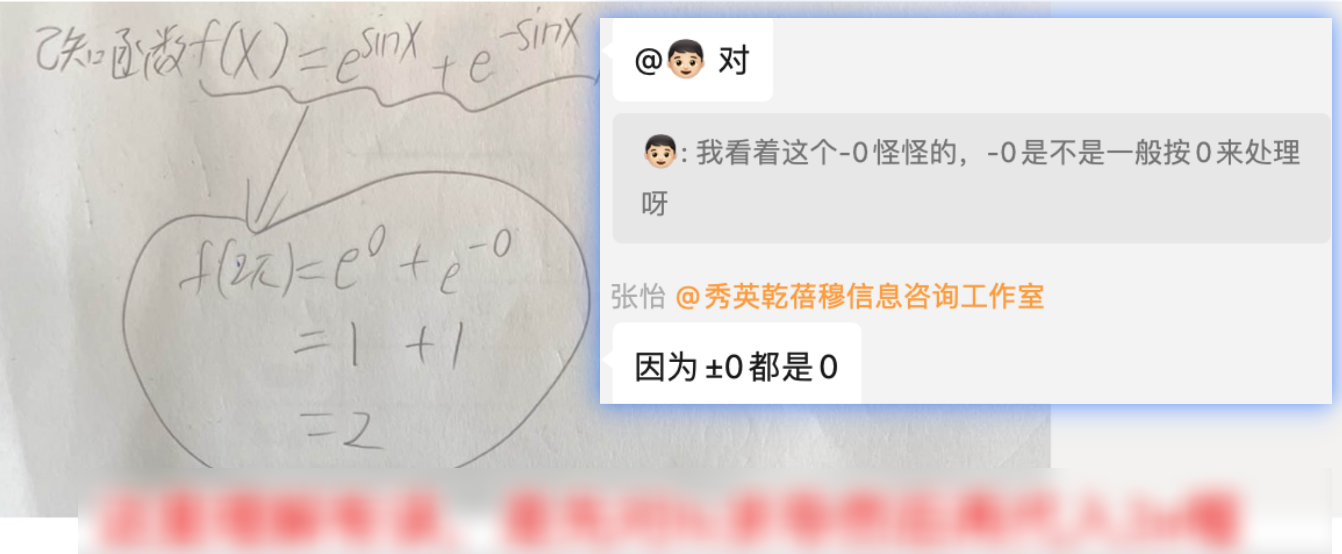 已知函数f(X)=e^sinX+e^-sinX
f(2π)=e^0+e^-0
=1+1
=2
@👦🏻 对
👦🏻: 我看着这个-0怪怪的，-0是不是一般按0来处理
呀
张怡 @秀英乾蓓穆信息咨询工作室
因为±0都是0